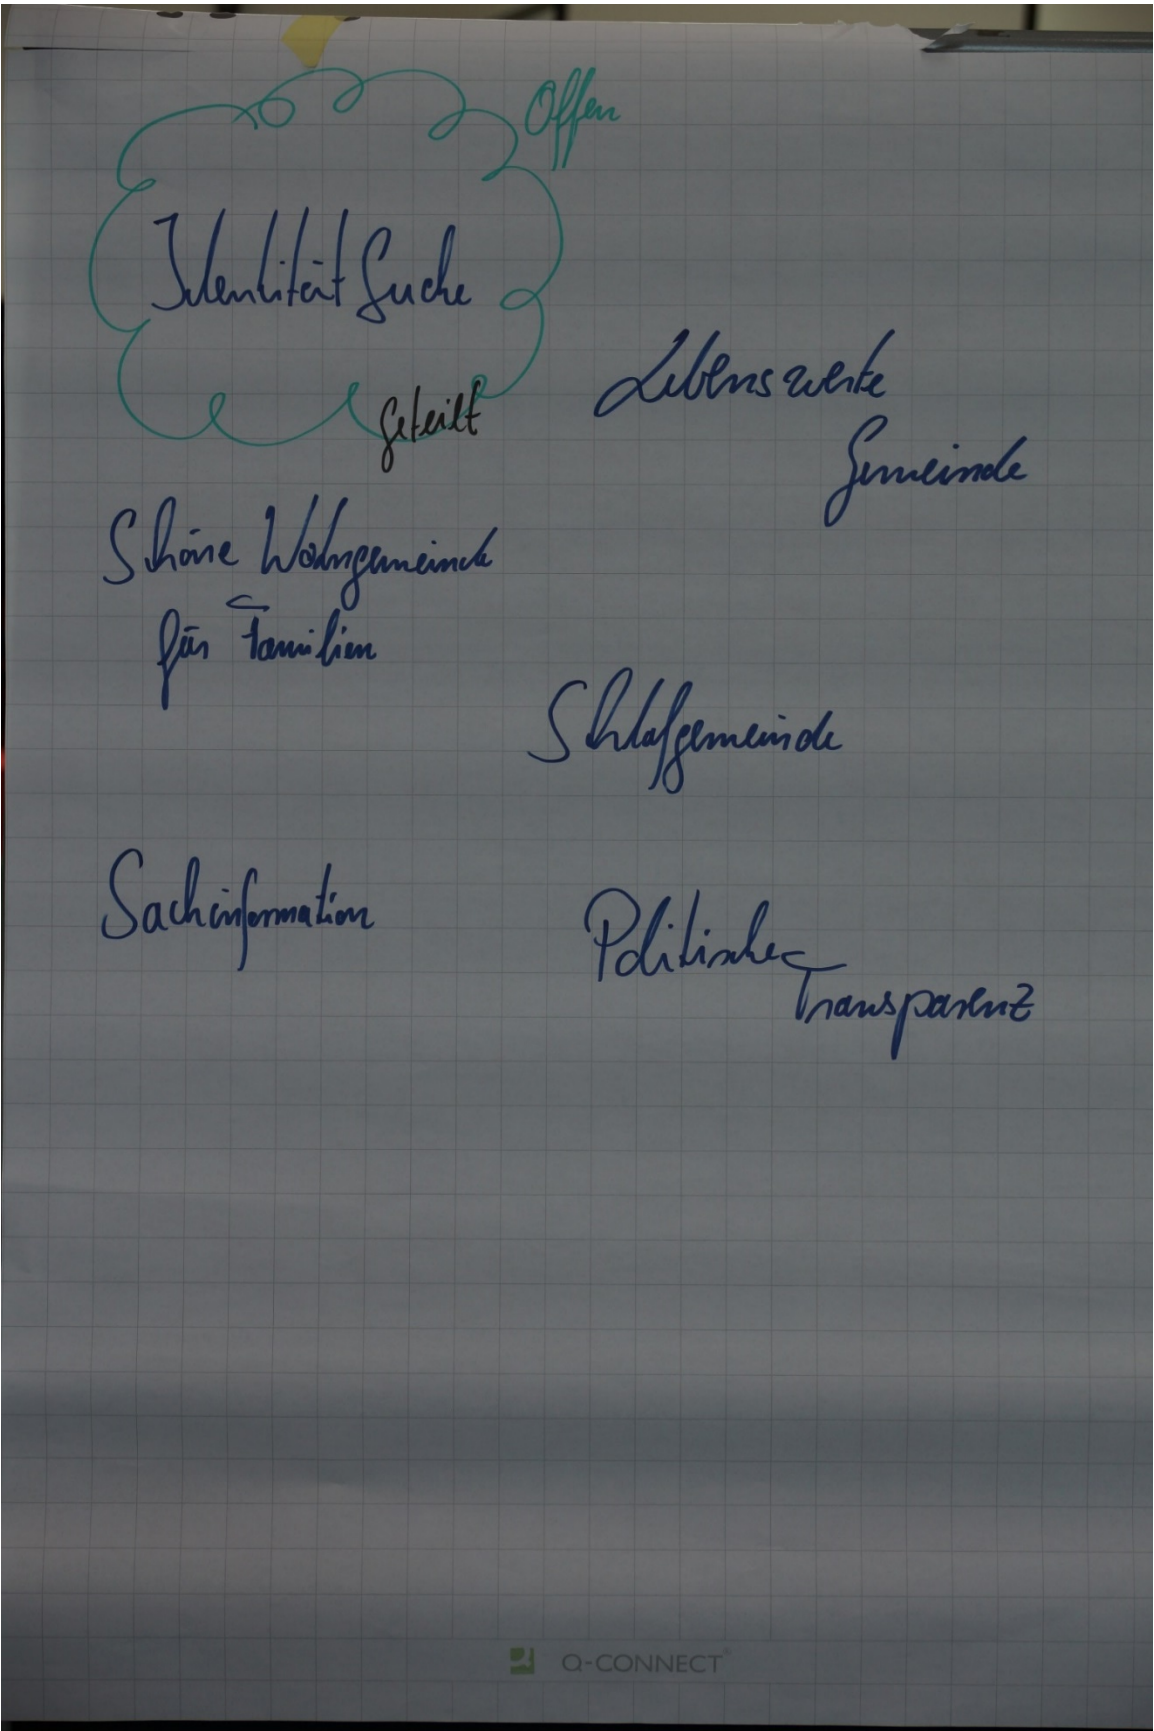 Offen
Identität Suche
geteilt
Lebenswerte
Gemeinde
Schöne Wohngemeinde
für Familien
Schlafgemeinde
Sachinformation
Politische
Transparenz
Q-CONNECT